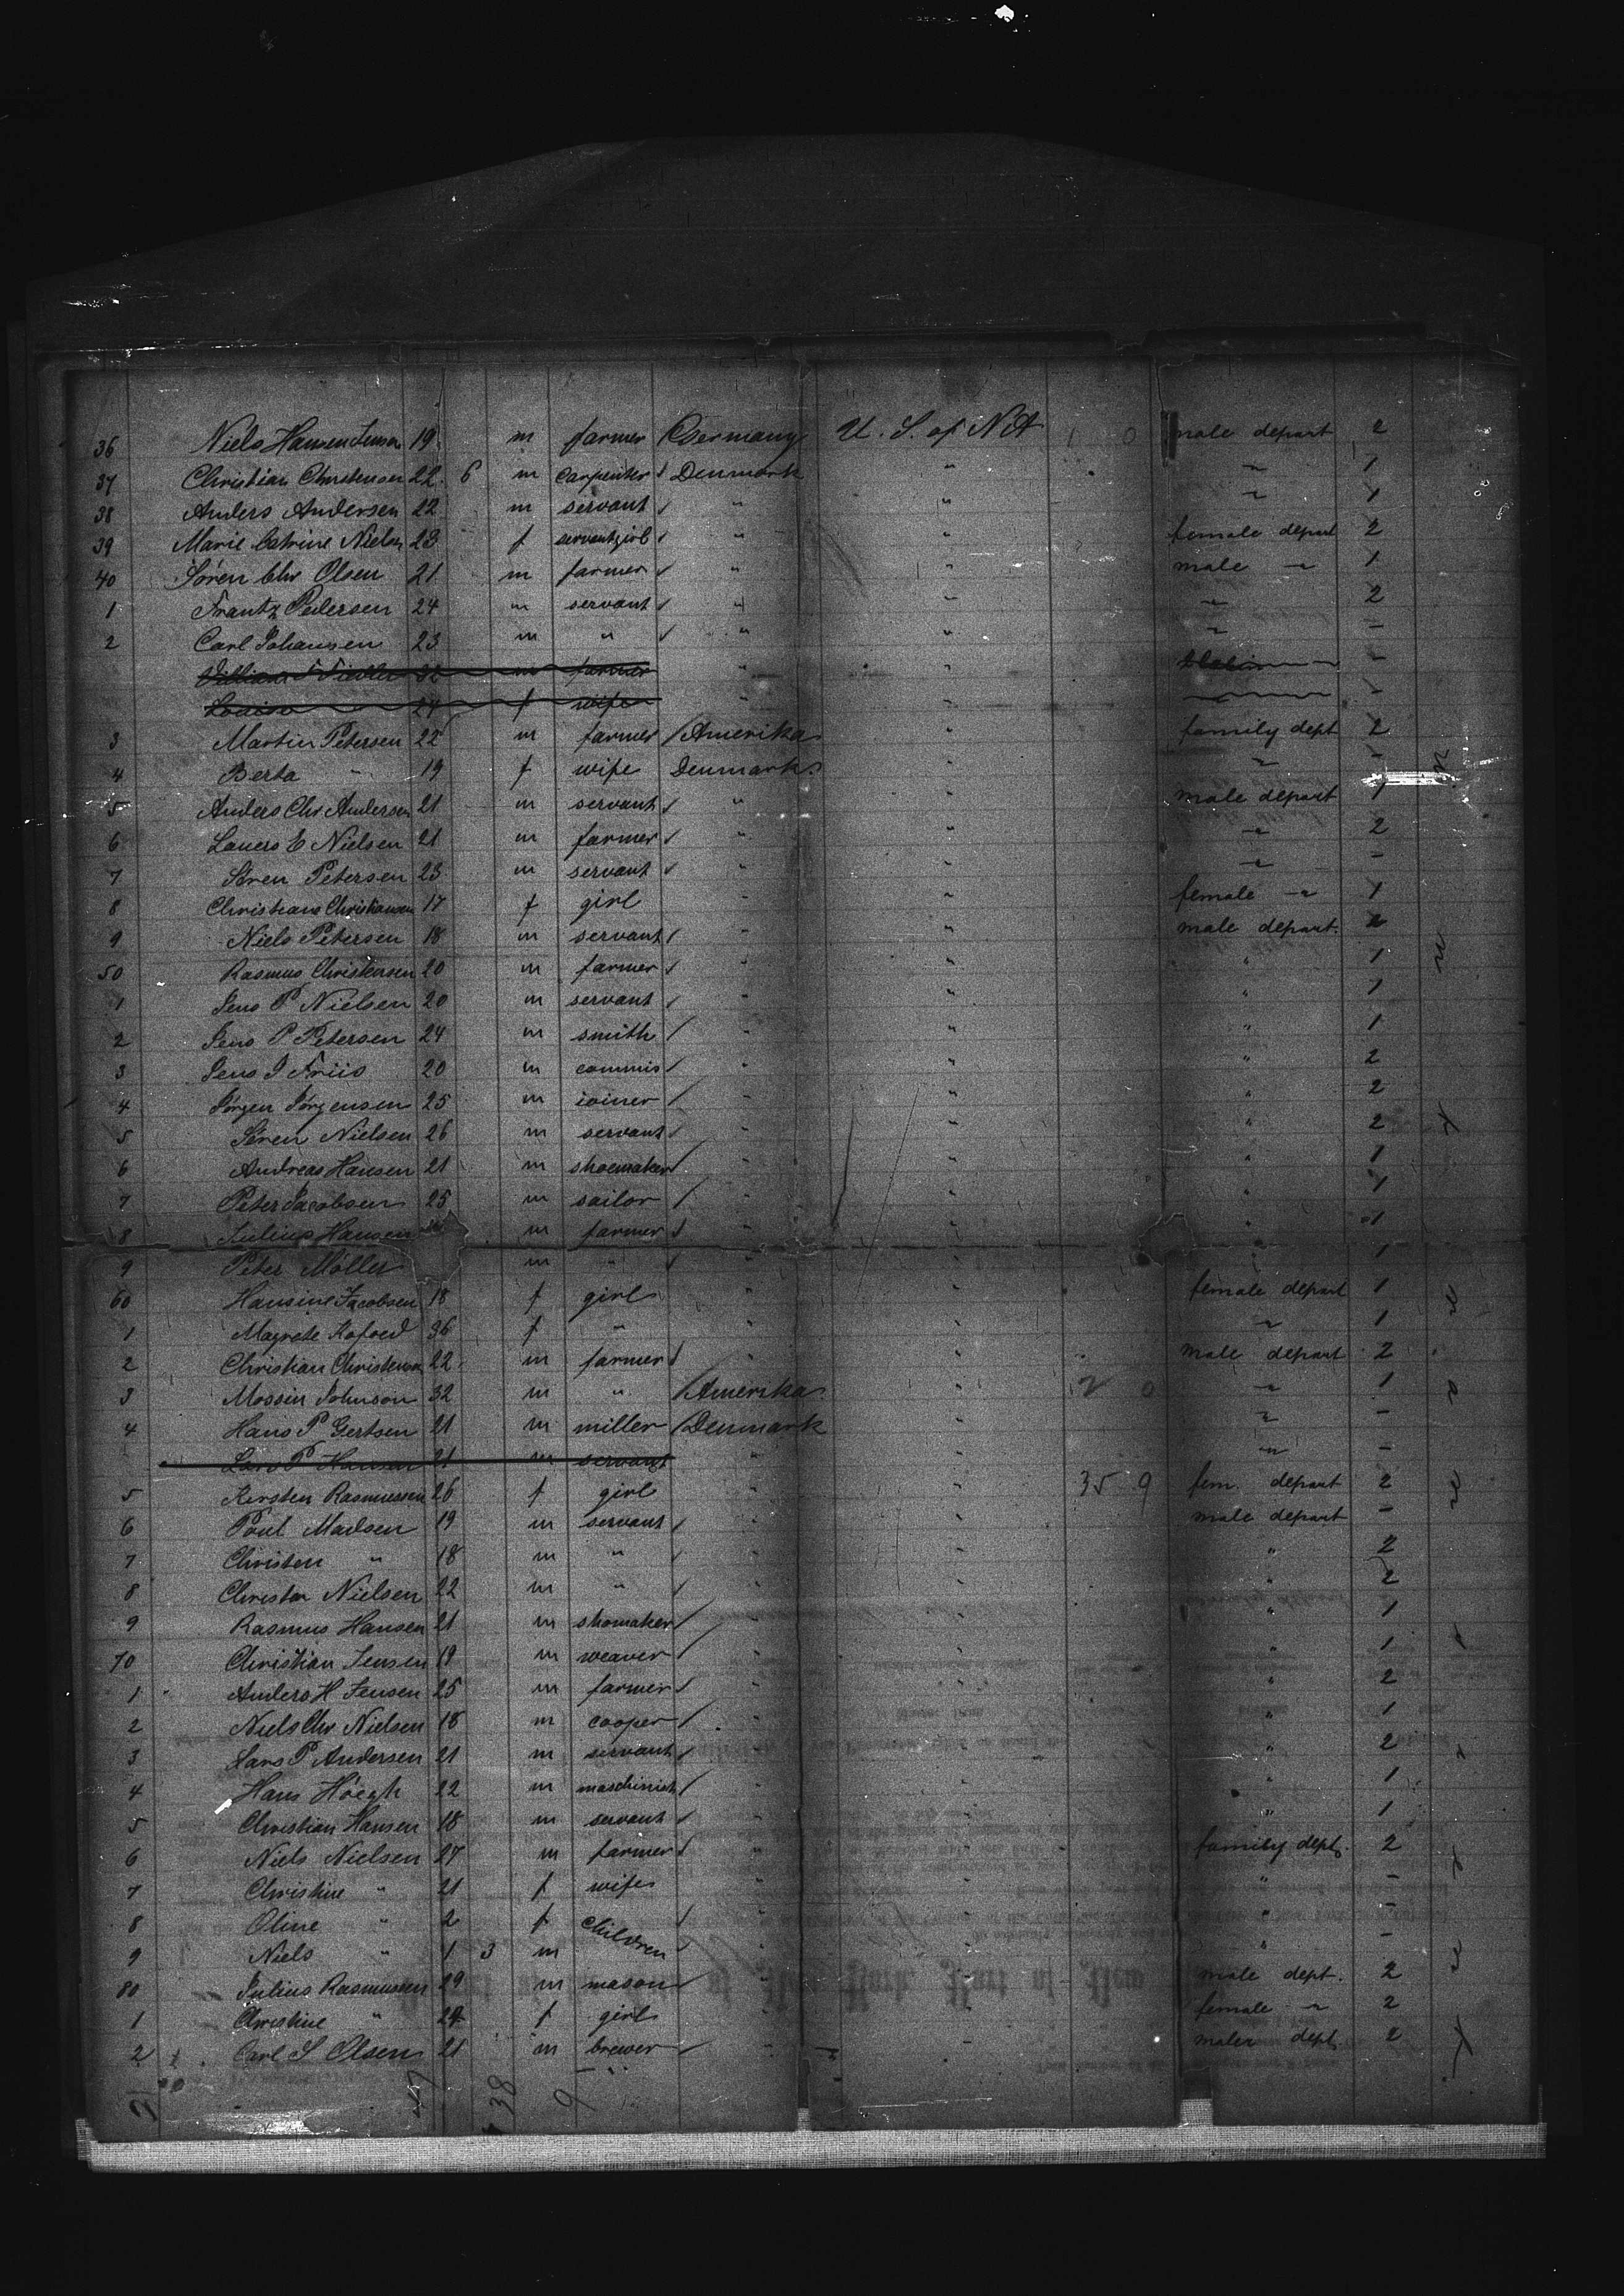 36 Niels Hansen Jensen 19 m farmer Germany U. S. of N A 1 0 male depart 2
37 Christian Christensen 22 6 m carpenter Denmark " " 1
38 Anders Andersen 22 m servant " " " 1
39 Marie Catrine Nielsen 23 f servantgirl " " female depart 2
40 Sören Chr Olsen 21 m farmer " " male " 1
1 Frantz Pedersen 24 m servant " " " 2
2 Carl Johansen 23 m " " " " -
Fiedler 32 m farmer " " -
Louise 24 f wife " " " -
3 Martin Petersen 22 m farmer Amerika " family dept 2
4 Berta " 19 f wife Denmark " " -
5 Anders Chr Andersen 21 m servant " " male depart 1
6 E Nielsen 21 m farmer " " " 2
7 Sören Petersen 23 m servant " " " -
8 Christiane Christiansen 17 f girl " " female " 1
9 Niels Petersen 18 m servant " " male depart. 2
50 Rasmus Christensen 20 m farmer " " " 1
1 Jens P Nielsen 20 m servant " " " 1
2 Jens P Petersen 24 m smith " " " 1
3 Jens J Friis 20 m commis " " " 2
4 Jörgen Jörgensen 25 m joiner " " " 2
5 Sören Nielsen 26 m servant " " " 2
6 Andreas Hansen 21 m shoemaker " " " 1
7 Peter Jacobsen 25 m sailor " " " 1
8 Julius Hansen m farmer " " " 1
9 Peter Möller m " " " " 1
60 Hansine Jacobsen 18 f girl " " female depart 1
1 Magrete Kofoed 36 f " " " " 1
2 Christian Christensen 22 m farmer " " male depart 2
3 Johnson 32 m " Amerika " 2 0 " 1
4 Hans P Gertsen 21 m miller Denmark " " -
Lars P Hansen 21 m servant " " " -
5 Kirsten Rasmussen 26 f girl " " 35 9 fem. depart 2
6 Poul Madsen 19 m servant " " male depart -
7 Christen " 18 m " " " " 2
8 Christen Nielsen 22 m " " " " 2
9 Rasmus Hansen 21 m shomaker " " " 1
70 Christian Jensen 19 m weaver " " " 1
1 Anders H Jensen 25 m farmer " " " 2
2 Niels Chr Nielsen 18 m cooper " " " 1
3 Lars P Andersen 21 m servant " " " 2
4 Hans Höegh 22 m maschinist " " " 1
5 Christian Hansen 18 m servant " " " 1
6 Niels Nielsen 27 m farmer " " family dept. 2
7 Christine " 21 f wife " " " -
8 Oline " 2 f children " " " -
9 Niels " 1 3 m " " " -
80 Julius Rasmussen 29 m mason " " male dept. 2
1 Christine " 24 f girl " " female " 2
2 Carl S Olsen 21 m brewer " " male dept 2
47 38 9